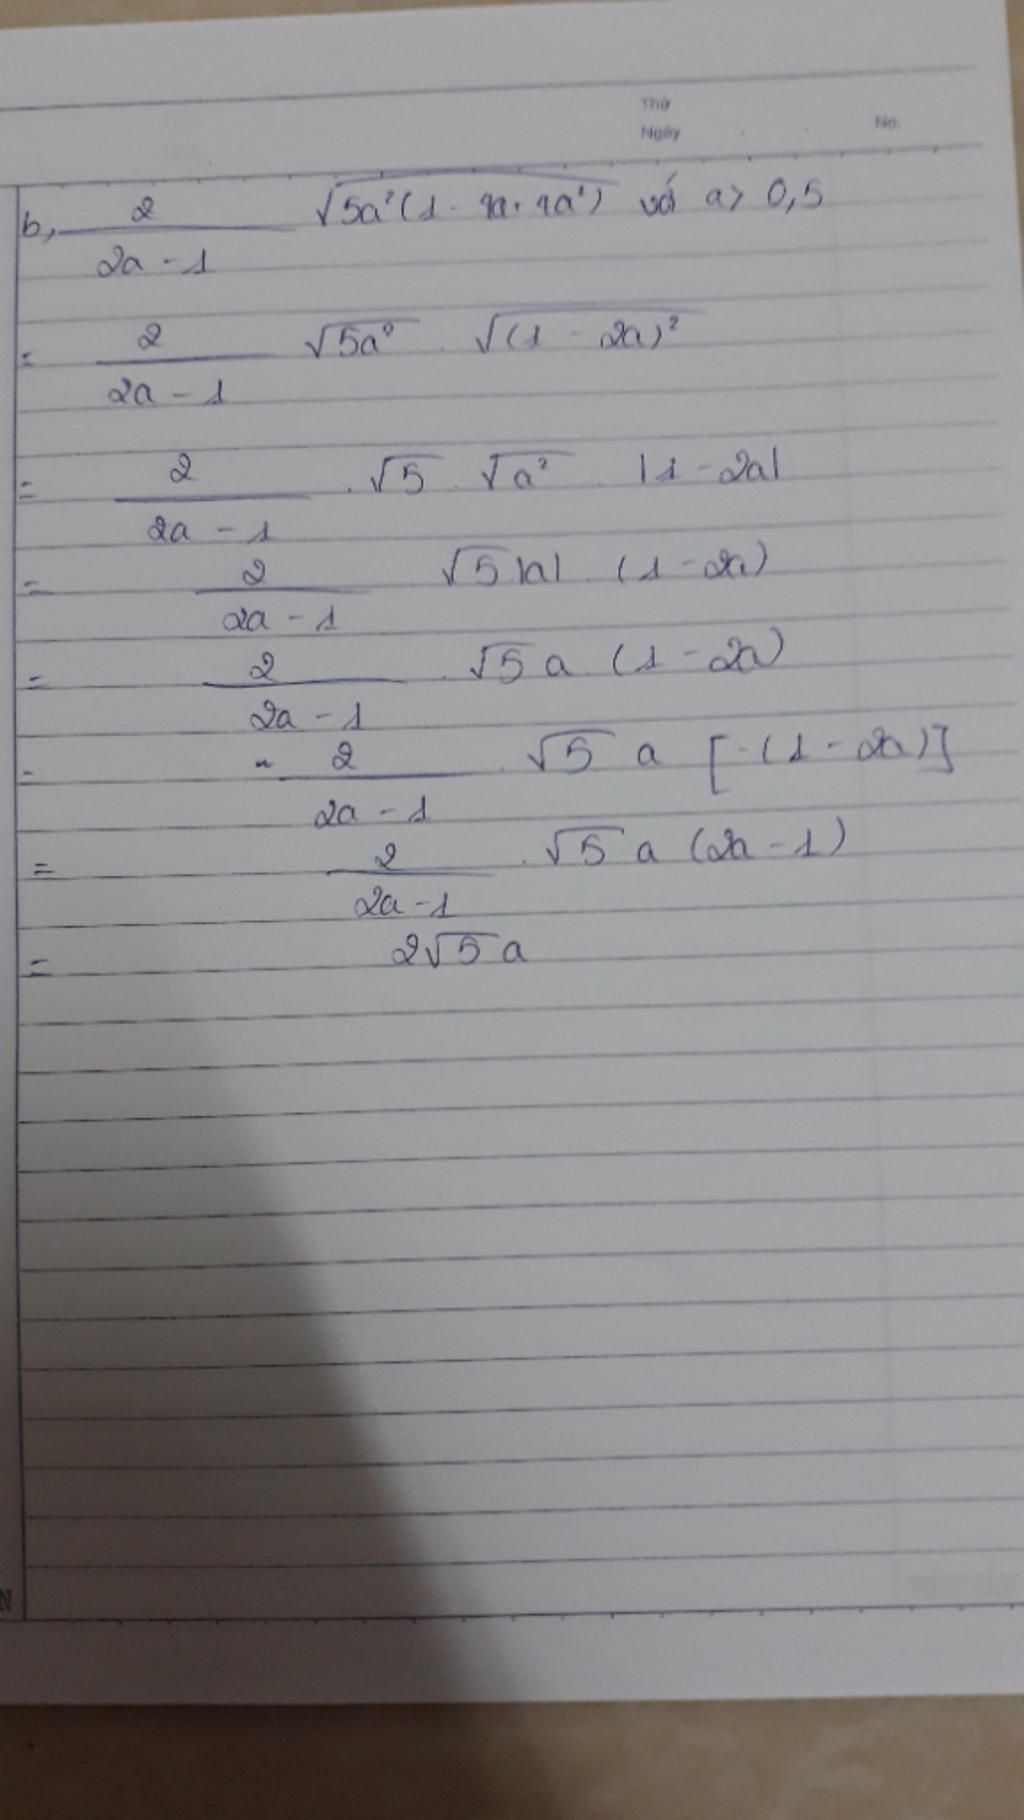 Thứ
Ngày No.
b, 2/(2a - 1) √5a²(1 - 4a + 4a²) với a > 0,5
= 2/(2a - 1) √5a² . √(1 - 2a)²
= 2/(2a - 1) . √5 . √a² . |1 - 2a|
= 2/(2a - 1) √5 |a| (1 - 2a)
= 2/(2a - 1) . √5 a (1 - 2a)
= - 2/(2a - 1) . √5 a [-(1 - 2a)]
= 2/(2a - 1) . √5 a (2a - 1)
= 2√5 a